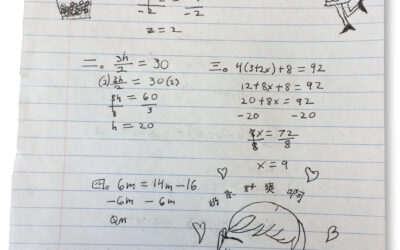 -2 -2
z = 2
二。 3h/2 = 30
(2) 3h/2 = 30(2)
3h/3 = 60/3
h = 20
三。 4(3+2x)+8 = 92
12+8x+8 = 92
20+8x = 92
-20 -20
8x/8 = 72/8
x = 9
四。 6m = 14m-16
-6m -6m
B